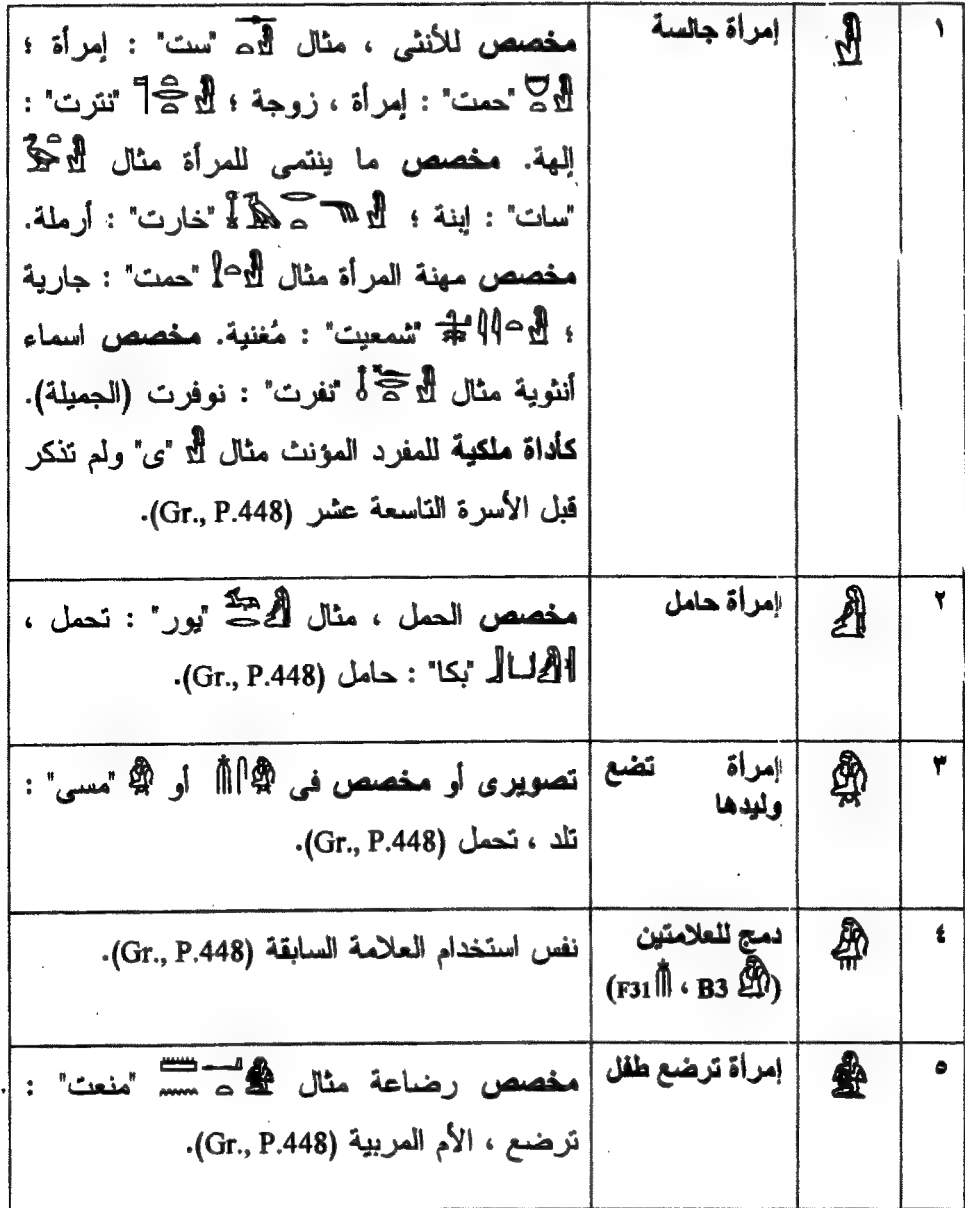 ١ إمرأة جالسة مخصص للأنثى ، مثال "ست" : إمرأة ؛
"حمت" : إمرأة ، زوجة ؛ "نترت" :
إلهة. مخصص ما ينتمى للمرأة مثال
"سات" : إبنة ؛ "خارت" : أرملة.
مخصص مهنة المرأة مثال "حمت" : جارية
؛ "شمعيت" : مُغنية. مخصص اسماء
أنثوية مثال "نفرت" : نوفرت (الجميلة).
كأداة ملكية للمفرد المؤنث مثال "ى" ولم تذكر
قبل الأسرة التاسعة عشر (Gr., P.448).
٢ إمرأة حامل مخصص الحمل ، مثال "يور" : تحمل ،
"بكا" : حامل (Gr., P.448).
٣ إمرأة تضع
وليدها
تصويرى أو مخصص فى أو "مسى" :
تلد ، تحمل (Gr., P.448).
٤ دمج للعلامتين
(B3 ، F31)
نفس استخدام العلامة السابقة (Gr., P.448).
٥ إمرأة ترضع طفل مخصص رضاعة مثال "منعت" :
ترضع ، الأم المربية (Gr., P.448).